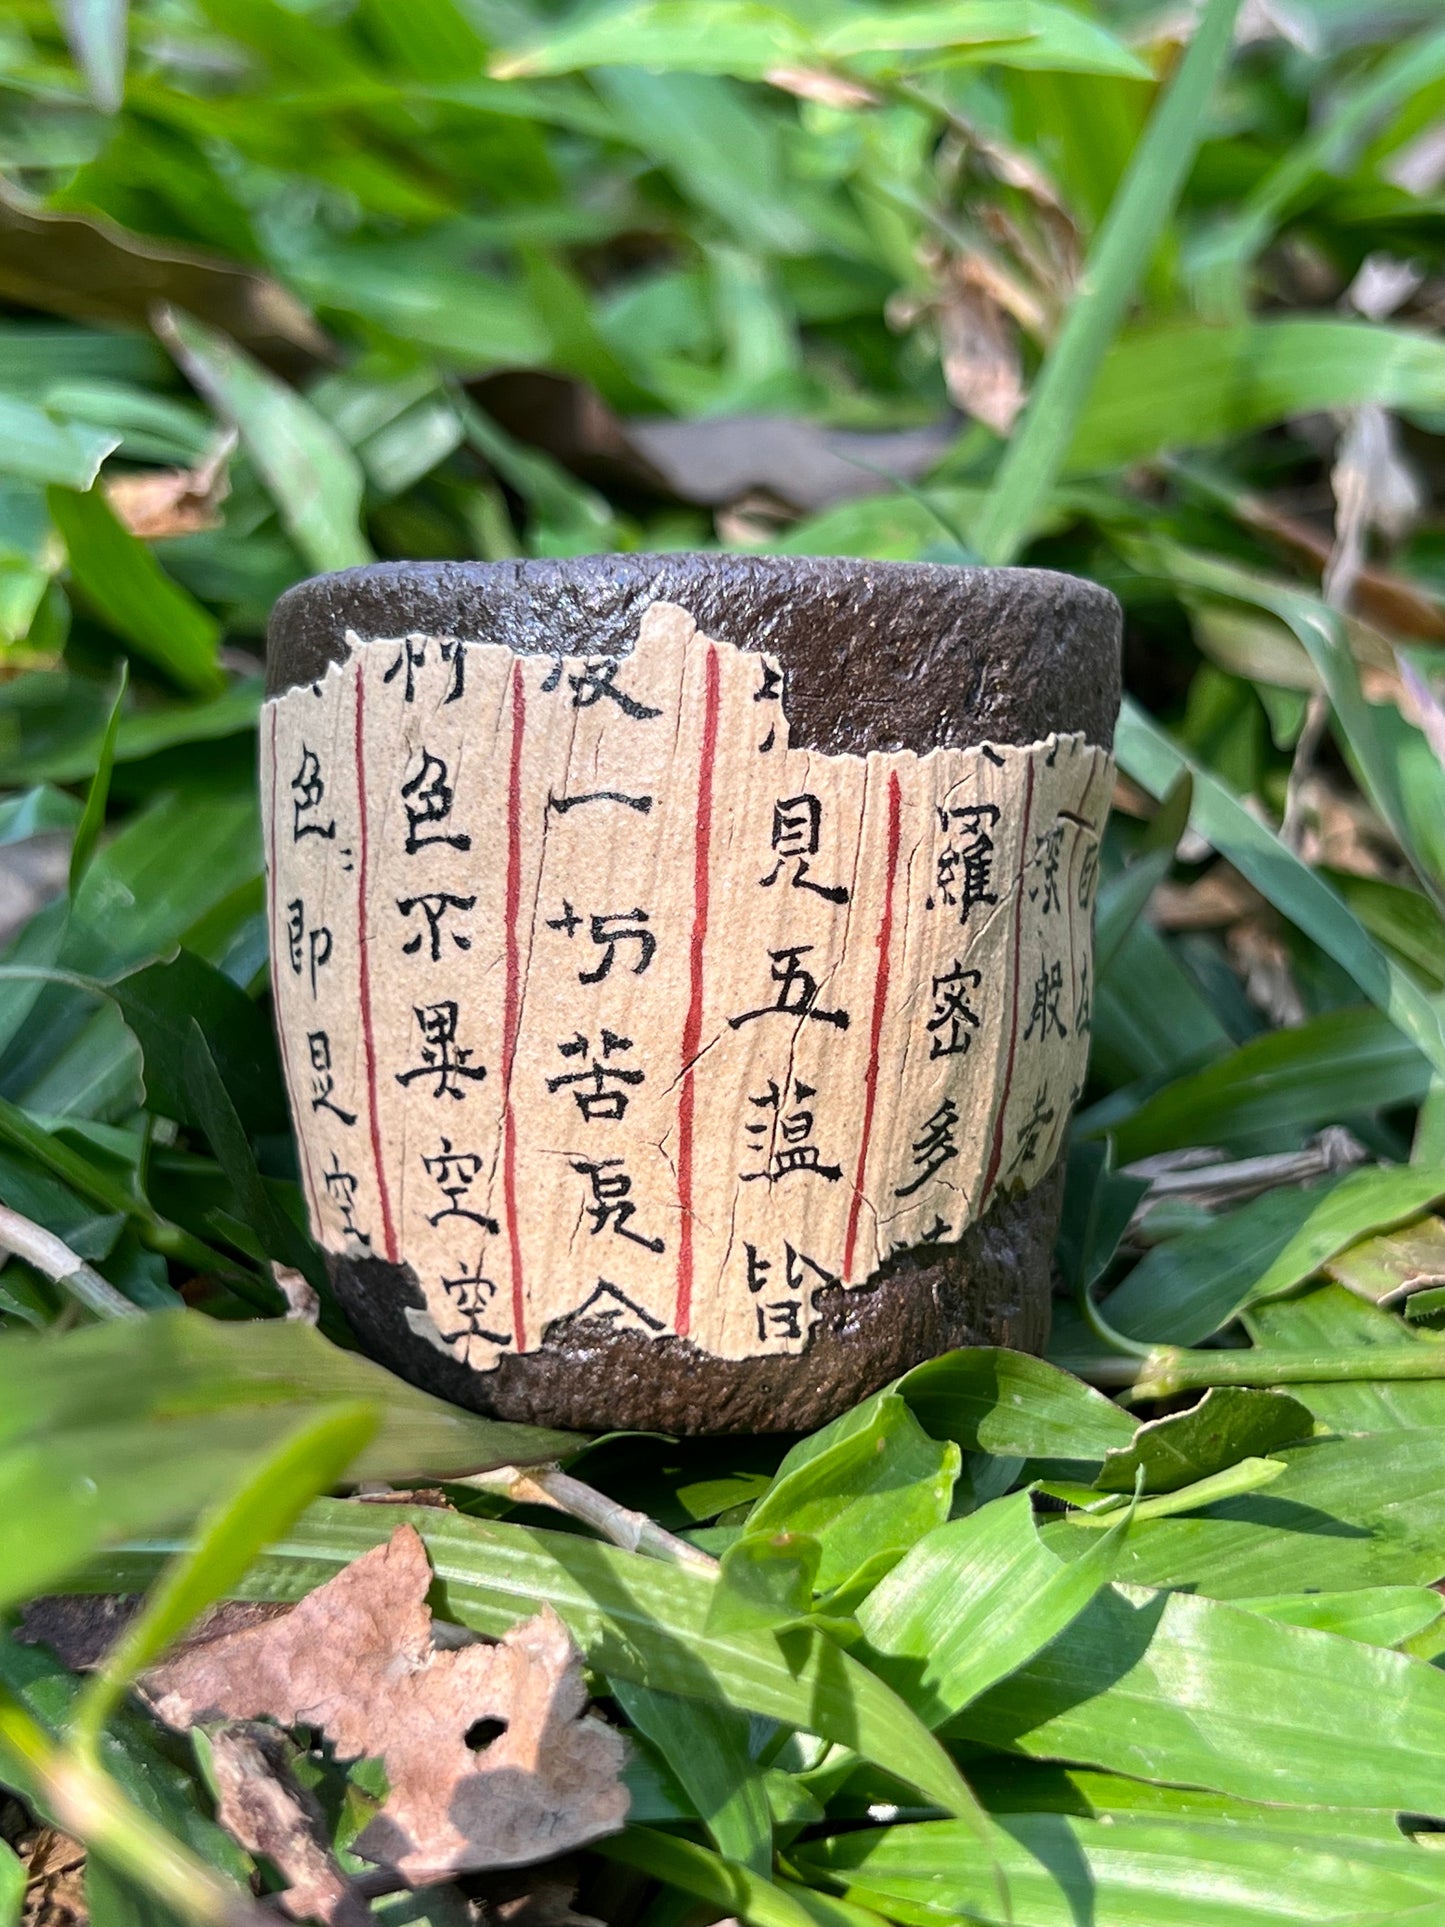 深般若
羅密多
見五蘊皆
一切苦厄
利色不異空空
色〻即是空